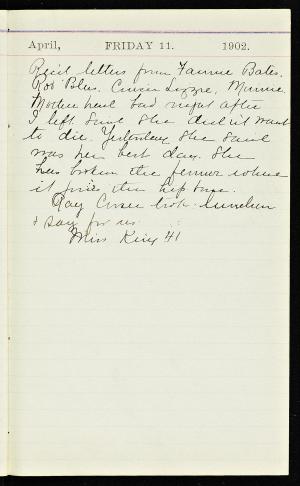 April, FRIDAY 11. 1902.
Rec'd letters from Fannie Bates.
Rob Bolus. Cousin Lizzie, Minnie.
Mother had bad night after
I left. Said she didn't want
to die. Yesterday she said
was her best day. She
has broken the femur where
it joins the hip bone.
Ray Cruse took luncheon
& say for us
Miss King 41